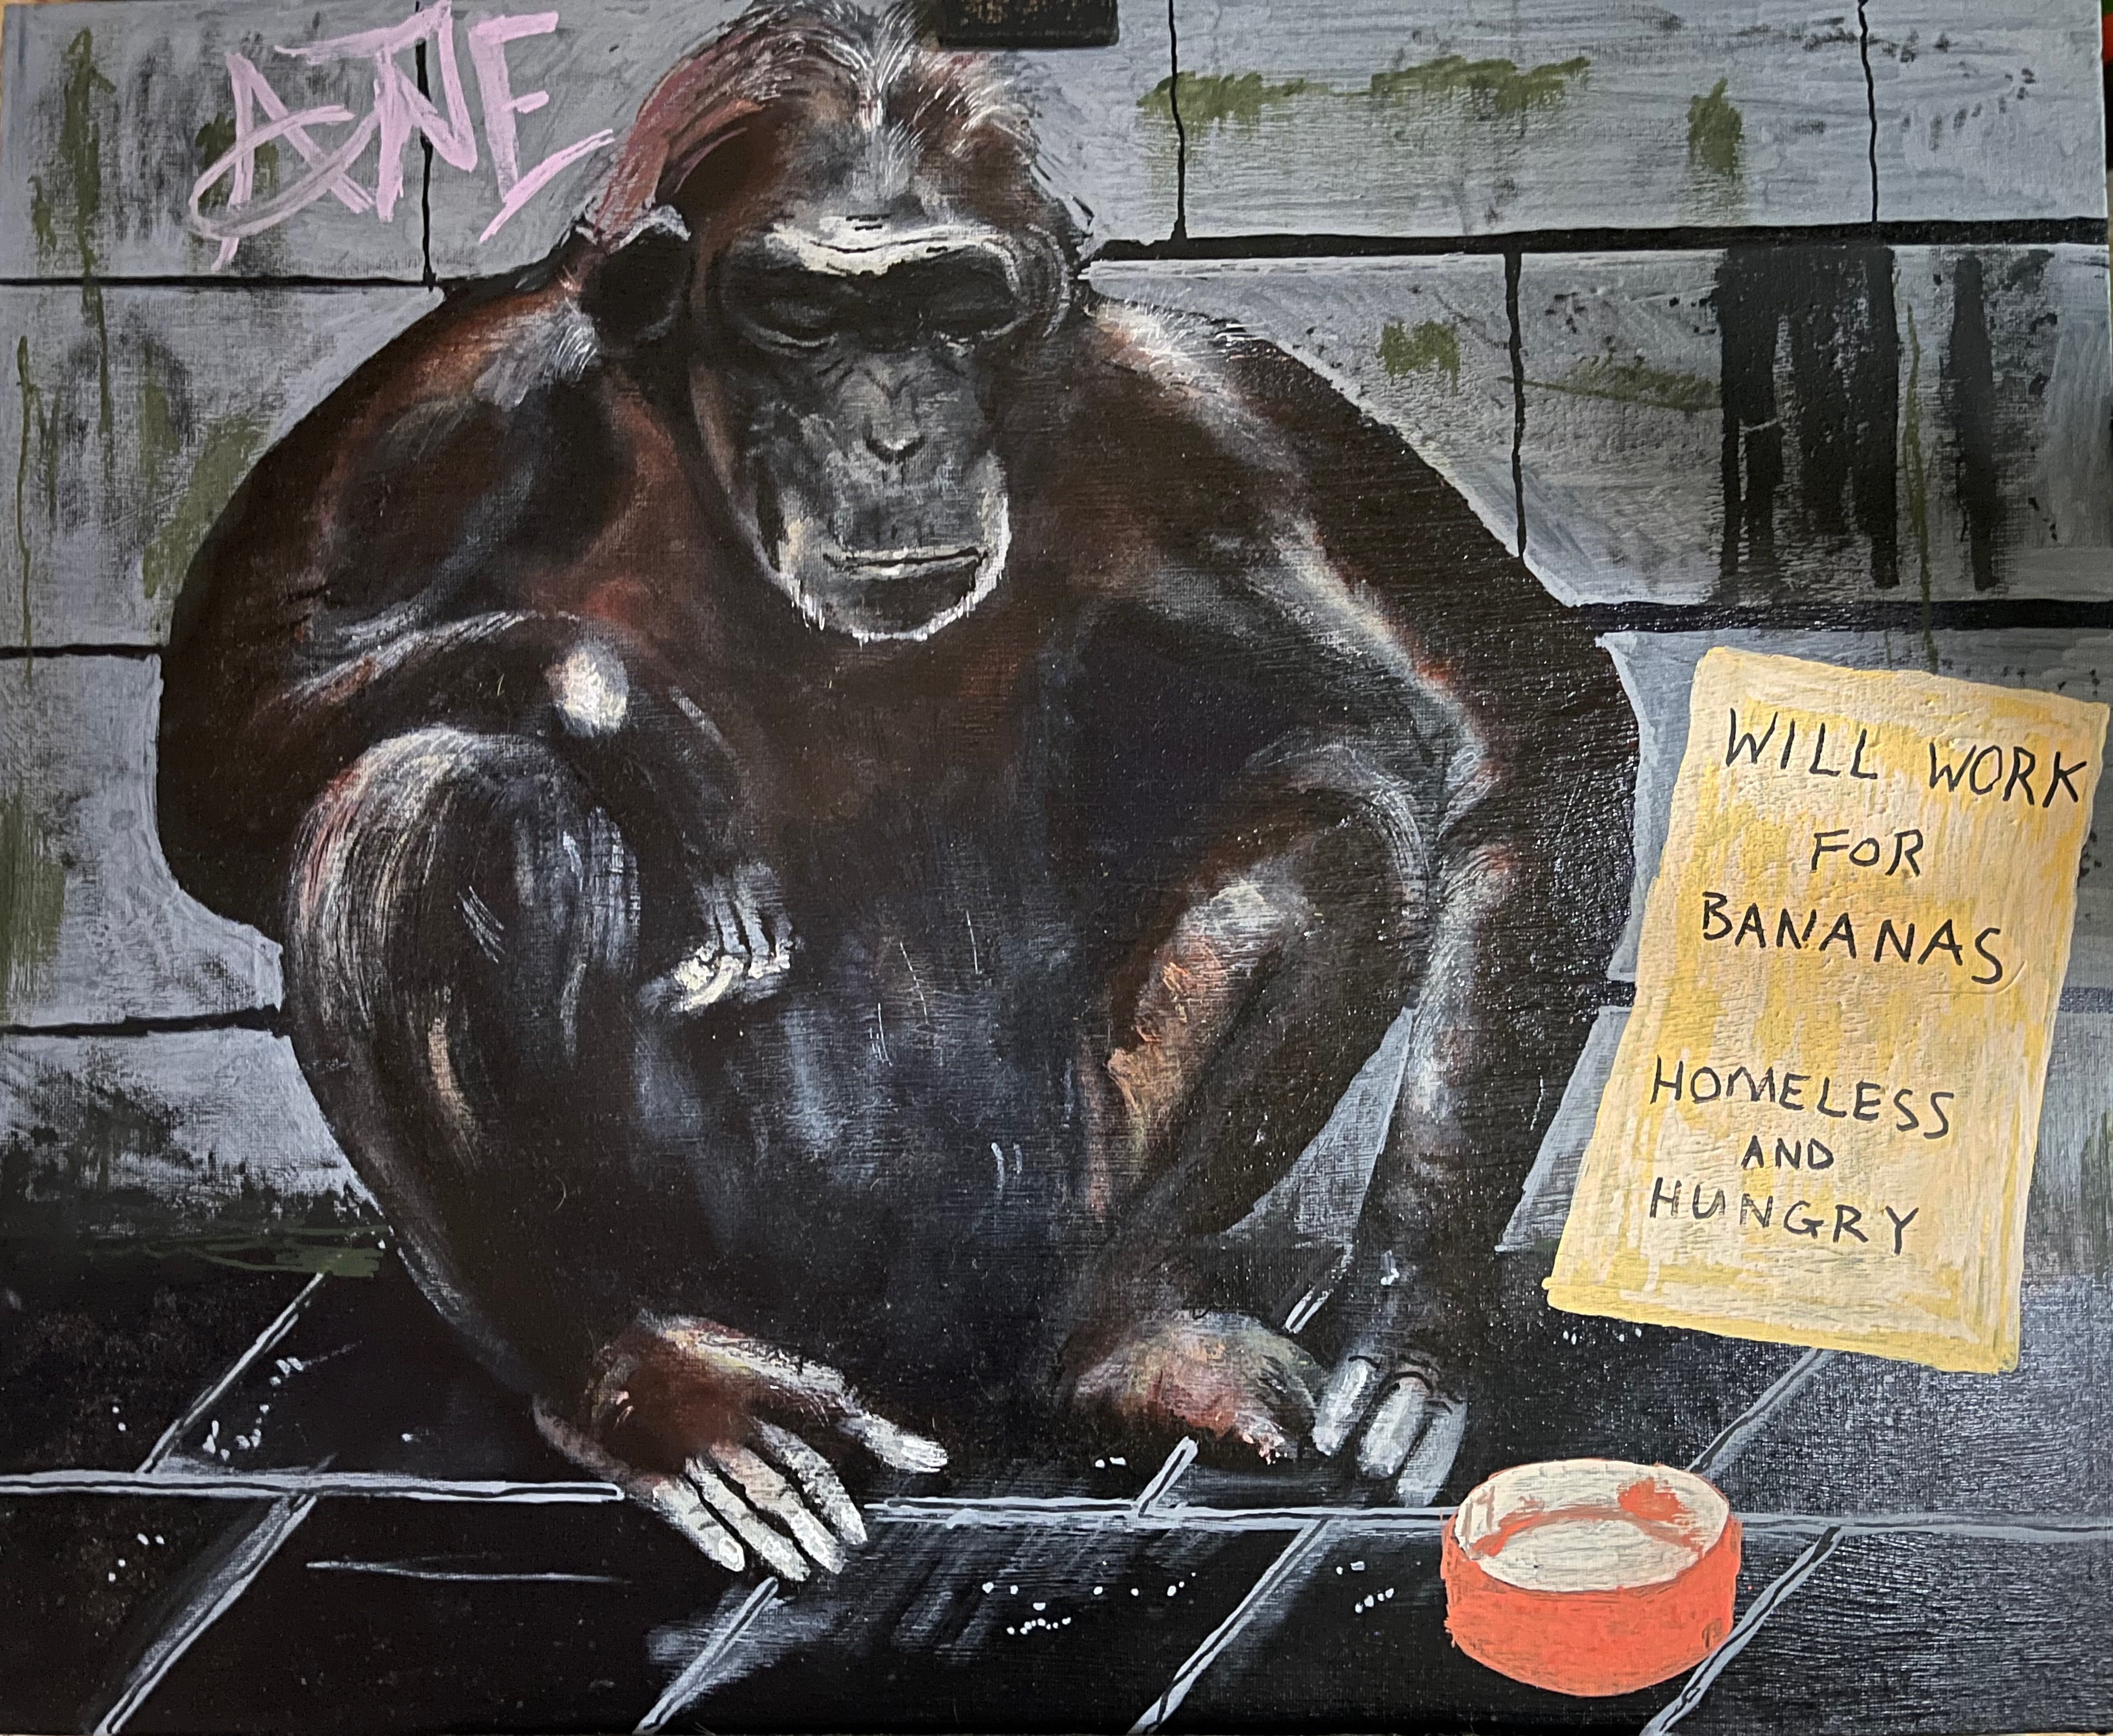 WILL WORK
FOR
BANANAS
HOMELESS
AND
HUNGRY